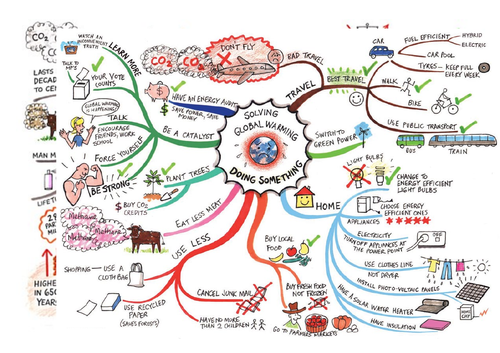 SOLVING
GLOBAL WARMING
DOING SOMETHING
TRAVEL
BAD TRAVEL
DON'T FLY
CO2
CO2
BEST TRAVEL
CAR
FUEL EFFICIENT
HYBRID
ELECTRIC
CAR POOL
TYRES - KEEP FULL
EVERY WEEK
WALK
BIKE
USE PUBLIC TRANSPORT
BUS
TRAIN
SWITCH TO
GREEN POWER
HOME
LIGHT BULBS
CHANGE TO
ENERGY EFFICIENT
LIGHT BULBS
APPLIANCES
CHOOSE ENERGY
EFFICIENT ONES
ELECTRICITY
TURN OFF APPLIANCES AT
THE POWER POINT
USE CLOTHES LINE
NOT DRYER
INSTALL PHOTO-VOLTAIC PANELS
HAVE A SOLAR WATER HEATER
HAVE INSULATION
BUY LOCAL
FOOD
BUY FRESH FOOD
NOT FROZEN
GO TO FARMERS MARKETS
USE LESS
CANCEL JUNK MAIL
HAVE NO MORE
THAN 2 CHILDREN
SHOPPING - USE A
CLOTH BAG
USE RECYCLED
PAPER
(SAVES FORESTS)
EAT LESS MEAT
Methane
Methane
Methane
BE A CATALYST
HAVE AN ENERGY AUDIT
SAVE POWER, SAVE
MONEY
LEARN MORE
WATCH AN
INCONVENIENT
TRUTH
TALK TO
MP'S
YOUR VOTE
COUNTS
TALK
GLOBAL WARMING
IS HAPPENING!
ENCOURAGE
FRIENDS, WORK
SCHOOL
FORCE YOURSELF
BE STRONG
PLANT TREES
BUY CO2
CREDITS
CO2
LASTS
DECA
TO CE
MAN M
LIFETI
HIGHES
IN 650
YEARS